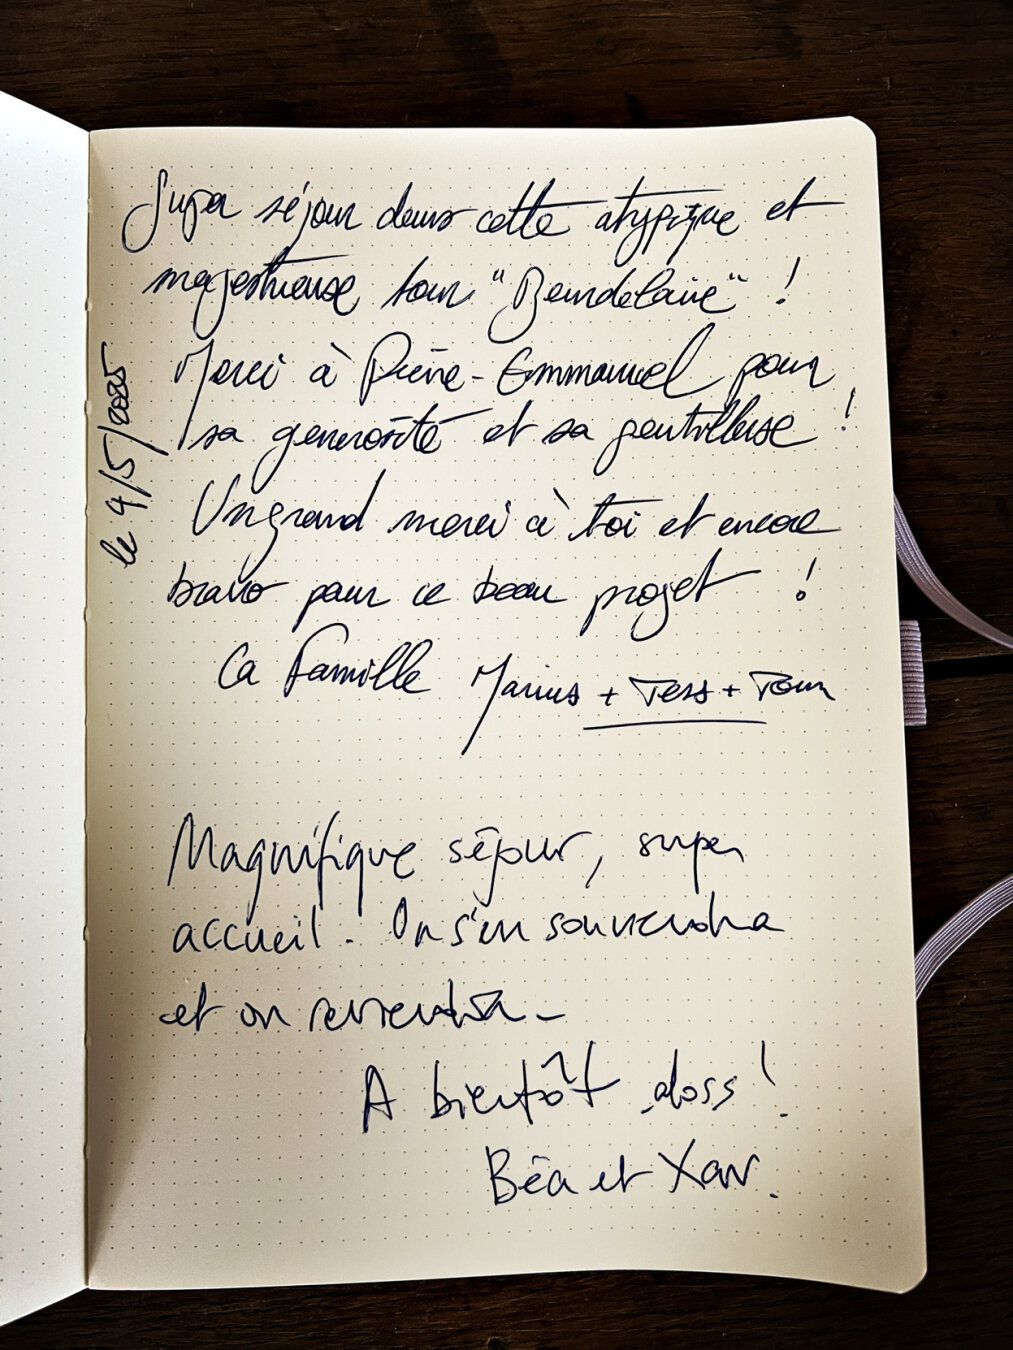 Super séjour dans cette atypique et
majestueuse tour "Beaudelaire" !
Merci à Pierre-Emmanuel pour
sa générosité et sa gentillesse !
Un grand merci à toi et encore
bravo pour ce beau projet !
La Famille Marius + Tess + Tom
le 4/5/2025
Magnifique séjour, super
accueil. On s'en souviendra
et on reviendra -
A bientôt alors !
Béa et Xav.